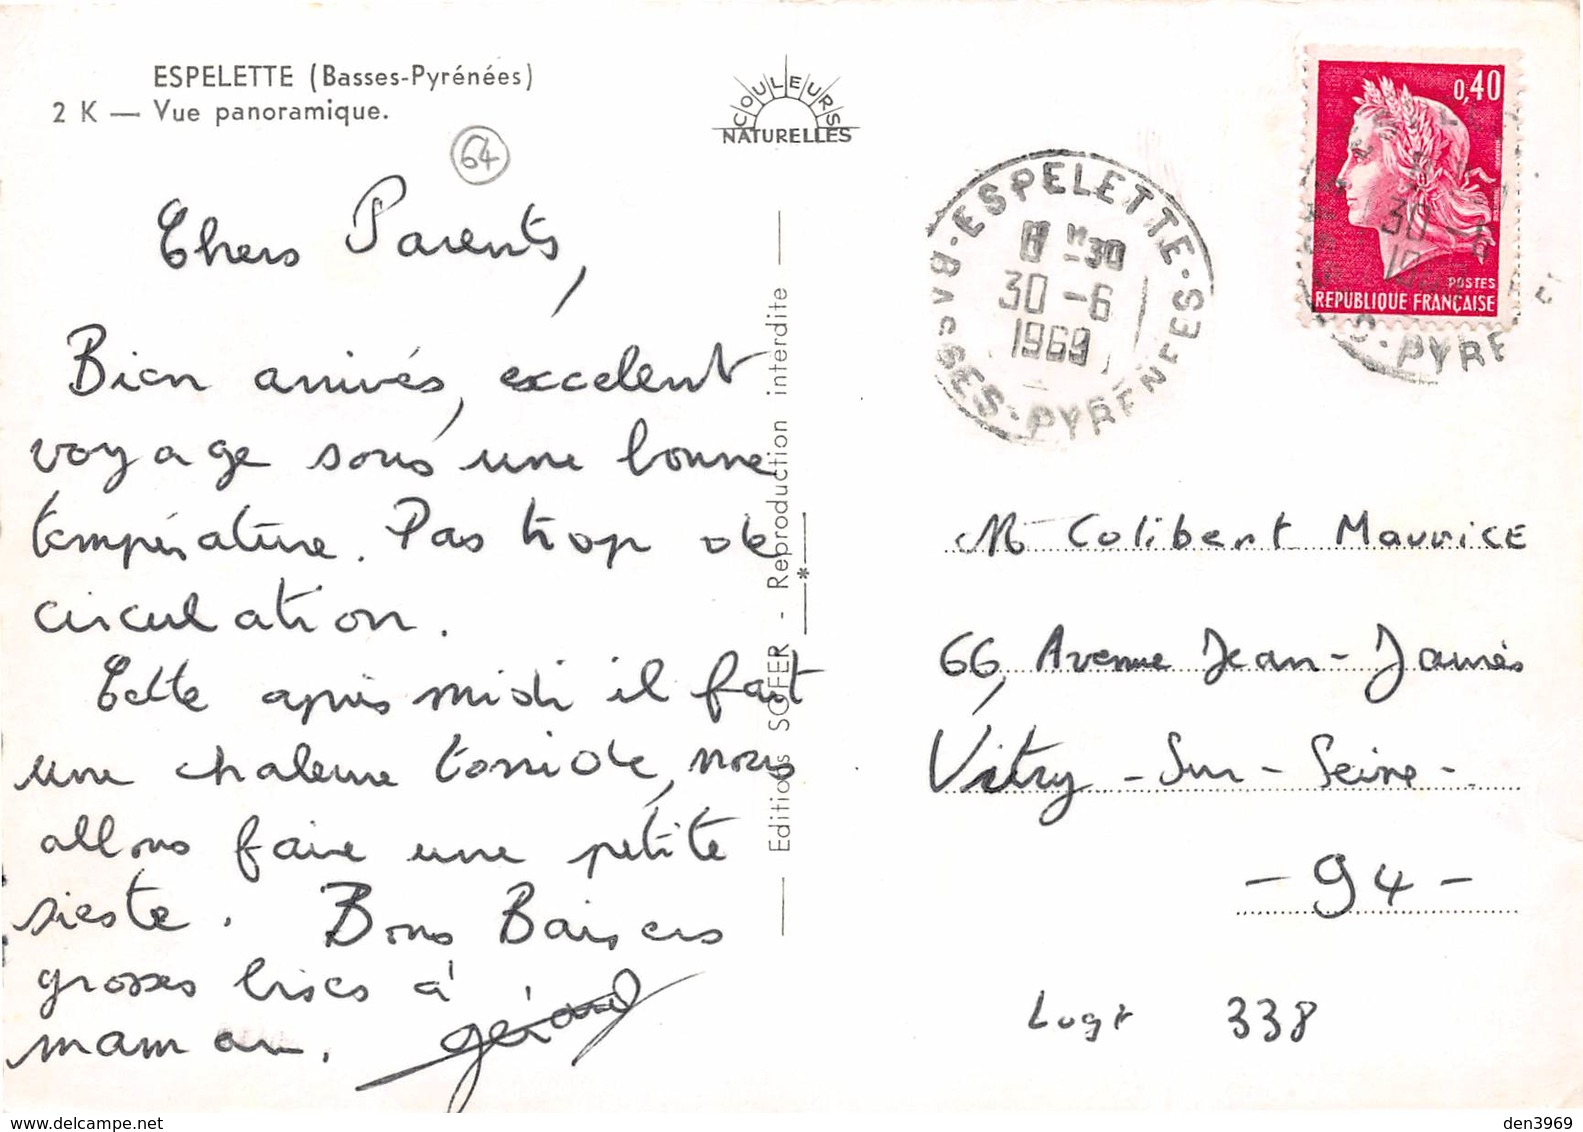 ESPELETTE (Basses-Pyrénées)
2 K — Vue panoramique.
64
Chers Parents,
Bien arrivés, excelent
voyage sous une bonne
température. Pas trop de
circulation.
Cette après midi il fait
une chaleur torride, nous
allons faire une petite
sieste. Bons Baisers
grosses bises à
maman.
gérard
COULEURS
NATURELLES
Editions SOFER - Reproduction interdite
*
ESPELETTE
BASSES-PYRENEES
30
30 -6
1969
0,40
POSTES
REPUBLIQUE FRANÇAISE
30 -6
PYRE
M Colibert MauricE
66, Avenue Jean-Jaurés
Vitry-Sur-Seine-
-94-
Logt 338
den3969